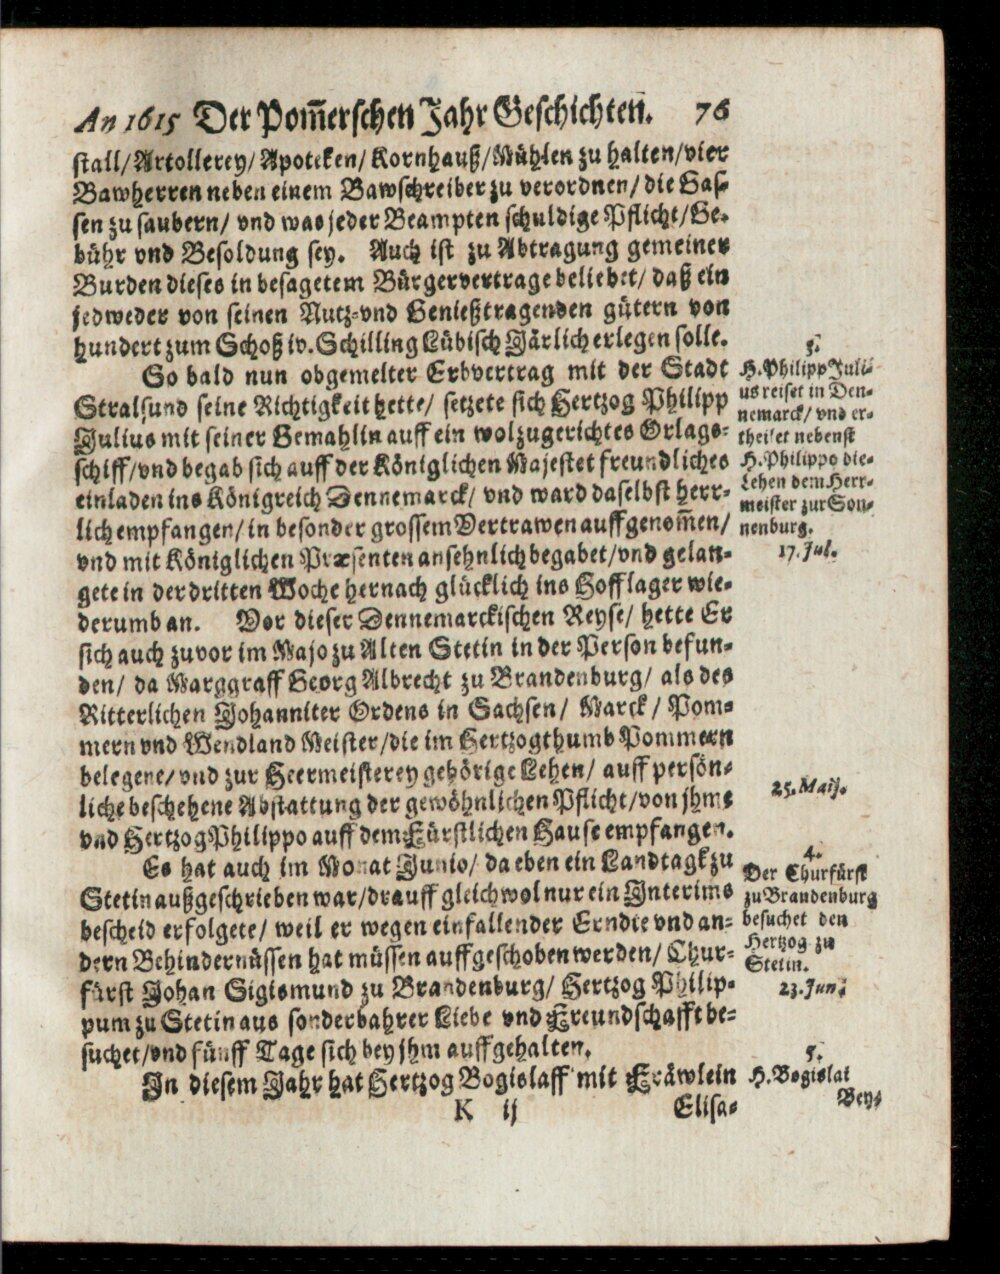 An 1615 Der Pom̃erschen Jahr Geschichten. 76
stall/Artollerey/Apoteken/Kornhauß/Mühlen zu halten/vier
Bawherren neben einem Bawschreiber zu verordnen/die Gas-
sen zu saubern/ vnd was jeder Beampten schuldige Pflicht/Ge-
bühr vnd Besoldung sey. Auch ist zu Abtragung gemeiner
Burden dieses in besagetem Bürgervertrage beliebet/ daß ein
jedweder von seinen Nutz-vnd Genießtragenden gütern von
hundert zum Schoß iv. Schilling Lübisch Järlich erlegen solle.
So bald nun obgemelter Erbvertrag mit der Stadt
Stralsund seine Richtigkeit hette/ setzete sich Hertzog Philipp
Julius mit seiner Gemahlin auff ein wolzugerichtes Orlags-
schiff/vnd begab sich auff der Königlichen Majestet freundliches
einladen ins Königreich Dennemarck/ vnd ward daselbst herr-
lich empfangen/in besonder grossem Vertrawen auffgenom̃en/
vnd mit Königlichen Præsenten ansehnlich begabet/vnd gelan-
gete in der dritten Woche hernach glücklich ins Hofflager wie-
derumb an. Vor dieser Dennemarckischen Reyse/ hette Er
sich auch zuvor im Majo zu Alten Stetin in der Person befun-
den/ da Marggraff Georg Albrecht zu Brandenburg/ als des
Ritterlichen Johanniter Ordens in Sachsen/ Marck/ Pom-
mern vnd Wendland Meister/die im Hertzogthumb Pommern
belegene/vnd zur Heermeisterey gehörige Lehen/ auff persön-
liche beschehene Abstattung der gewöhnlichen Pflicht/von jhme
vnd Hertzog Philippo auff dem Fürstlichen Hause empfangen.
Es hat auch im Monat Junio/ da eben ein Landtag zu
Stetin außgeschrieben war/drauff gleichwol nur ein Interims
bescheid erfolgete/ weil er wegen einfallender Erndte vnd an-
dern Behindernüssen hat müssen auffgeschoben werden/ Chur-
fürst Johan Sigismund zu Brandenburg/ Hertzog Philip-
pum zu Stetin aus sonderbahrer Liebe vnd Freundschafft be-
suchet/vnd fünff Tage sich bey jhm auffgehalten.
In diesem Jahr hat Hertzog Bogislaff mit Fräwlein
K ij Elisa-
3.
H. Philipp Juli-
us reiset in Den-
nemarck/ vnd er-
theilet nebenst
H. Philippo die
Lehen dem Herr-
meister zur Son-
nenburg.
17. Jul.
25. Maij.
4.
Der Churfürst
zu Brandenburg
besuchet den
Hertzog zu
Stetin.
23. Jun.
5.
H. Bogislai
Bey-